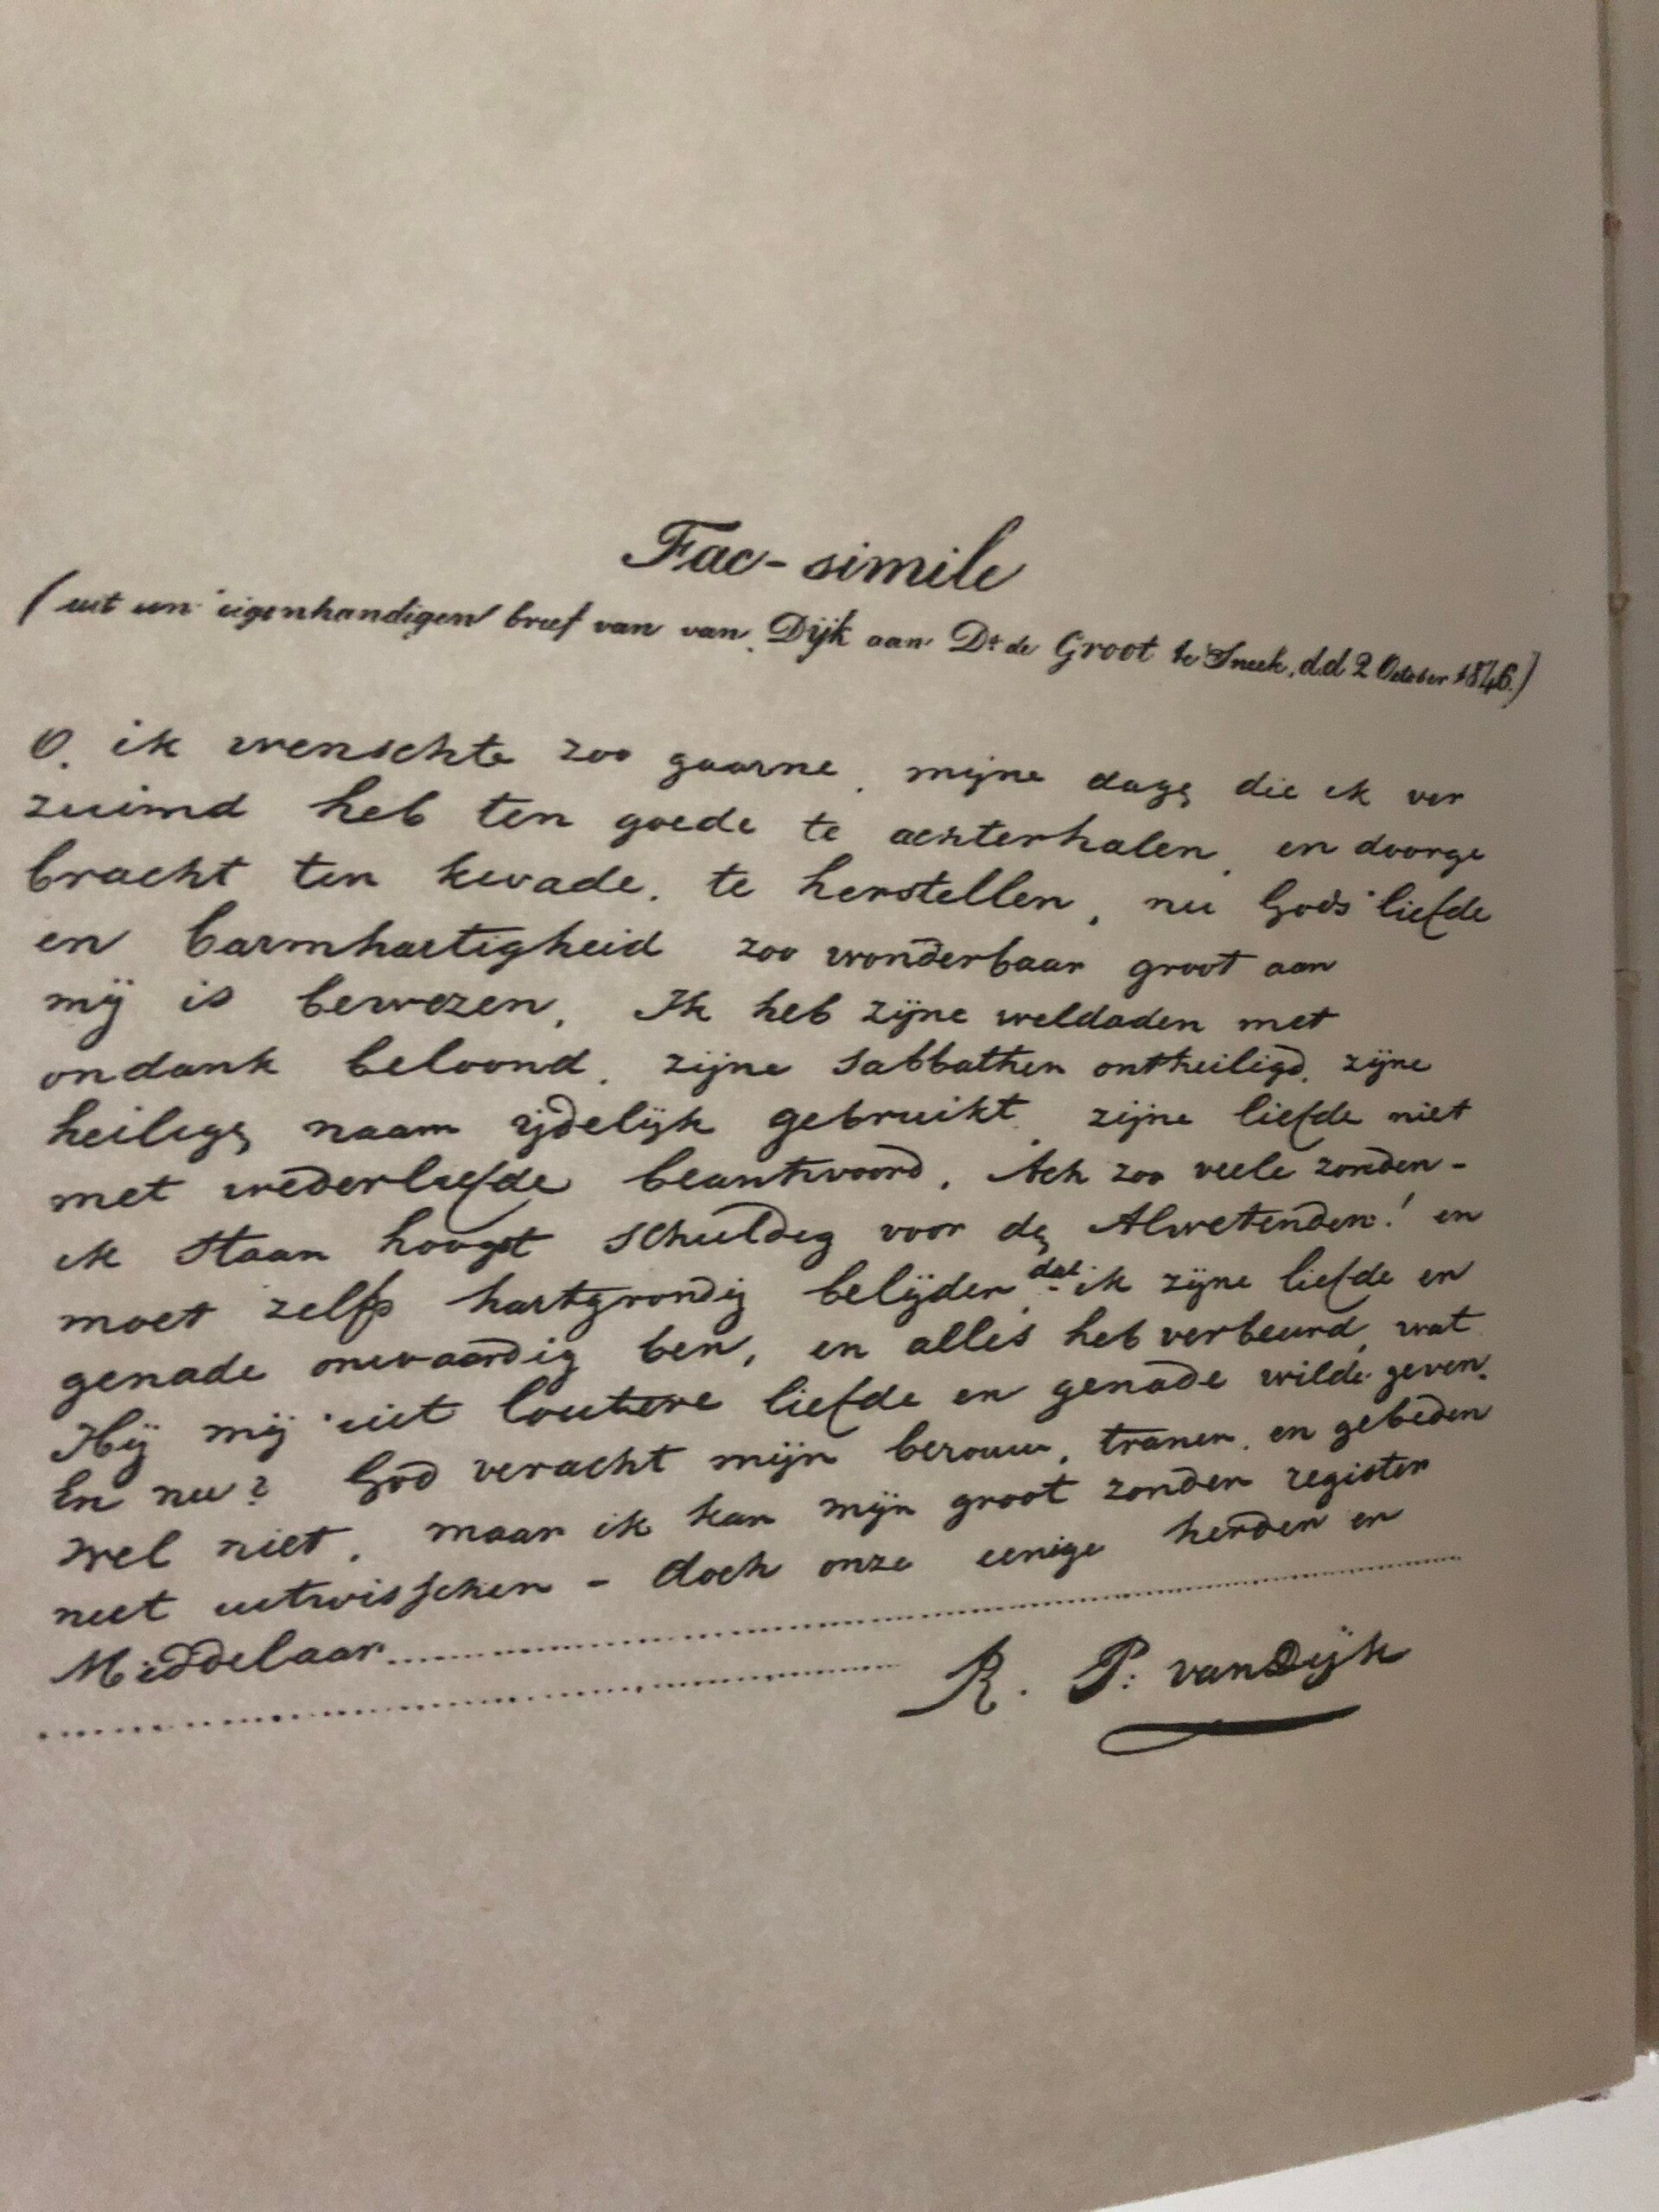 Fac-simile
(uit een eigenhandigen brief van van Dijk aan Dr de Groot te Sneek, d.d 2 October 1846.)
O. ik wenschte zoo gaarne, mijne dagen die ik ver
zuimd heb ten goede te achterhalen, en doorge
bracht ten kwade, te herstellen, nu Gods liefde
en barmhartigheid zoo wonderbaar groot aan
mij is bewezen, Ik heb zijne weldaden met
ondank beloond, zijne Sabbathen ontheiligd, zijne
heilige naam ijdelijk gebruikt, zijne liefde niet
met wederliefde beantwoord, Ach zoo veele zonden -
ik staan hoogst schuldig voor den Alwetenden! en
moet zelfs hartgrondig belijden, dat ik zijne liefde en
genade onwaardig ben, en alles heb verbeurd, wat
Hij mij uit loutere liefde en genade wilde geven.
En nu? God veracht mijn berouw, tranen, en gebeden
wel niet, maar ik kan mijn groot zonden register
niet uitwisschen - doch onze eenige herder en
Middelaar
R. P. van Dijk